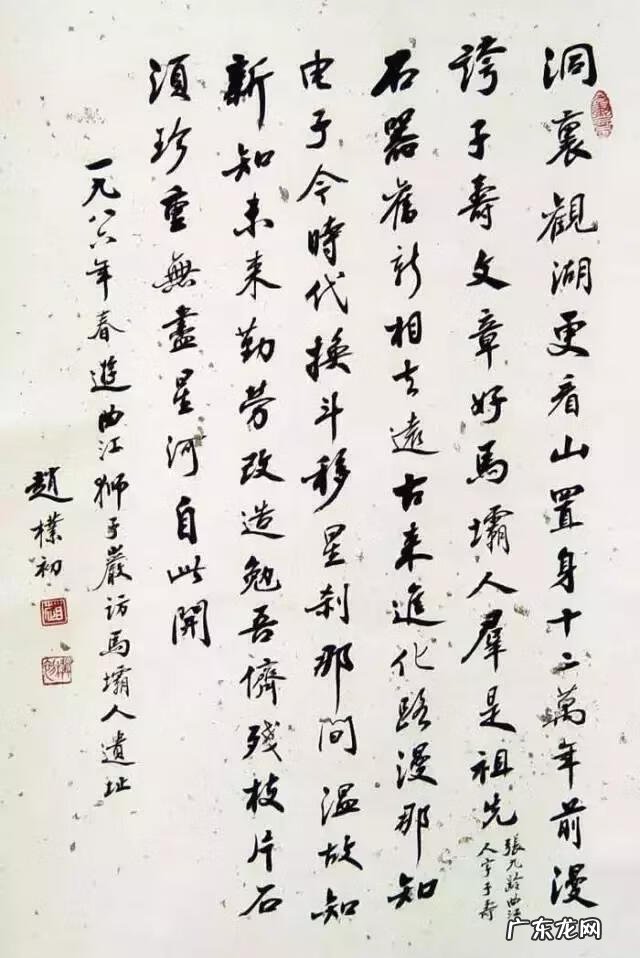 洞裏觀湖更看山置身十二萬年前漫
誇子壽文章好馬壩人羣是祖先
張九齡曲江
人字子壽
石器舊新相去遠古来進化路漫那知
电子今時代換斗移星刹那間溫故知
新知未来勤勞改造勉吾儕殘枝片石
須珍重無盡星河自此開
一九八六年春遊曲江狮子巖訪馬壩人遺址
趙樸初
广东龙网